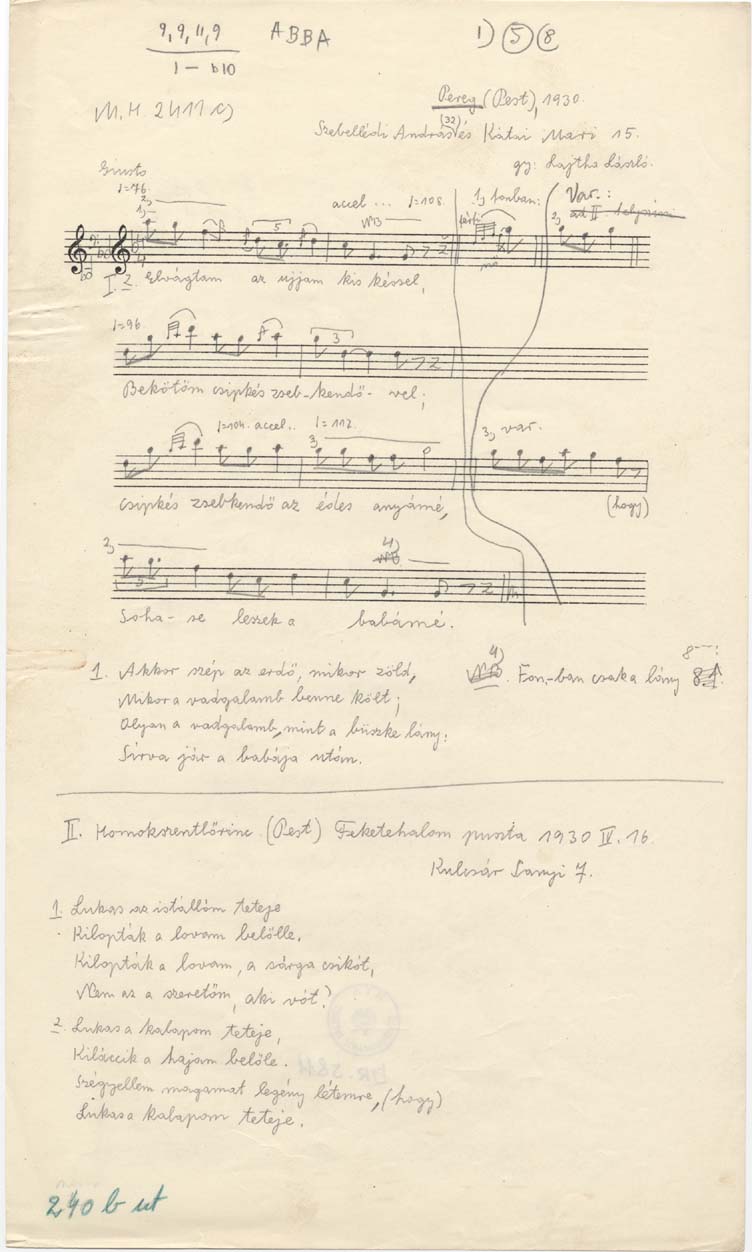 9, 9, 11, 9
ABBA
1) 5 8
1 – b10
M.H. 2411 c)
Pereg (Pest), 1930.
(32)
Szebellédi András és Kátai Mari 15.
gy: Lajtha László.
Giusto
♩=76.
2)
1)
accel... ♩=108.
NB
1) fonban:
férfi
nő
Var.:
2)
5
I. 2. Elvágtam az ujjam kis késsel,
♩=96.
3
Bekötöm csipkés zseb-kendő-vel;
♩=104. accel.. ♩=112.
3)
3) var.
csipkés zsebkendő az édes anyámé,
(hogy)
2)
4)
NB
5
Soha-se leszek a babámé.
1. Akkor szép az erdő, mikor zöld,
Mikor a vadgalamb benne költ;
Olyan a vadgalamb, mint a büszke lány:
Sírva jár a babája után.
4)
NB. Fon.-ban csak a lány
8
II. Homokszentlőrinc (Pest) Feketehalom puszta 1930 IV. 16.
Kulcsár Sanyi 7.
1. Lukas az istállóm teteje
Kilopták a lovam belőlle.
Kilopták a lovam, a sárga csikót,
Nem az a szeretőm, aki vót?
2. Lukas a kalapom teteje,
Kiláccik a hajam belőle.
Szégyellem magamat legény létemre, (hogy)
Lukas a kalapom teteje.
240 b ut